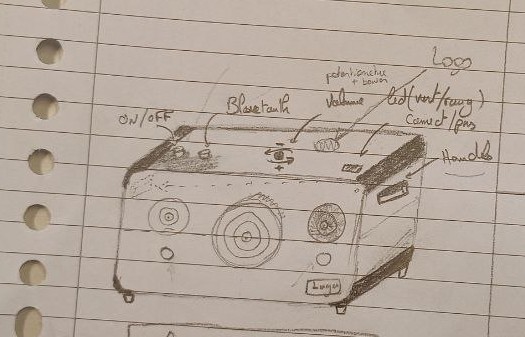 Logo
potentiometre
+ bouton
ON/OFF
Bluetooth
Volume
led (vert/rouge)
Connect/pas
Handle
-
+
Logo